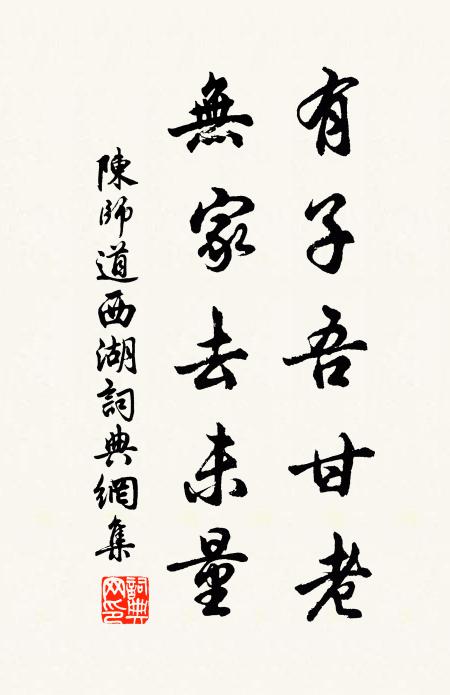 有子吾甘老
無家去未量
陳師道西湖詞典網集
詞典網印